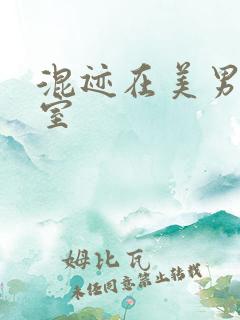 混迹在美男
室
姆比瓦
未经同意禁止转载